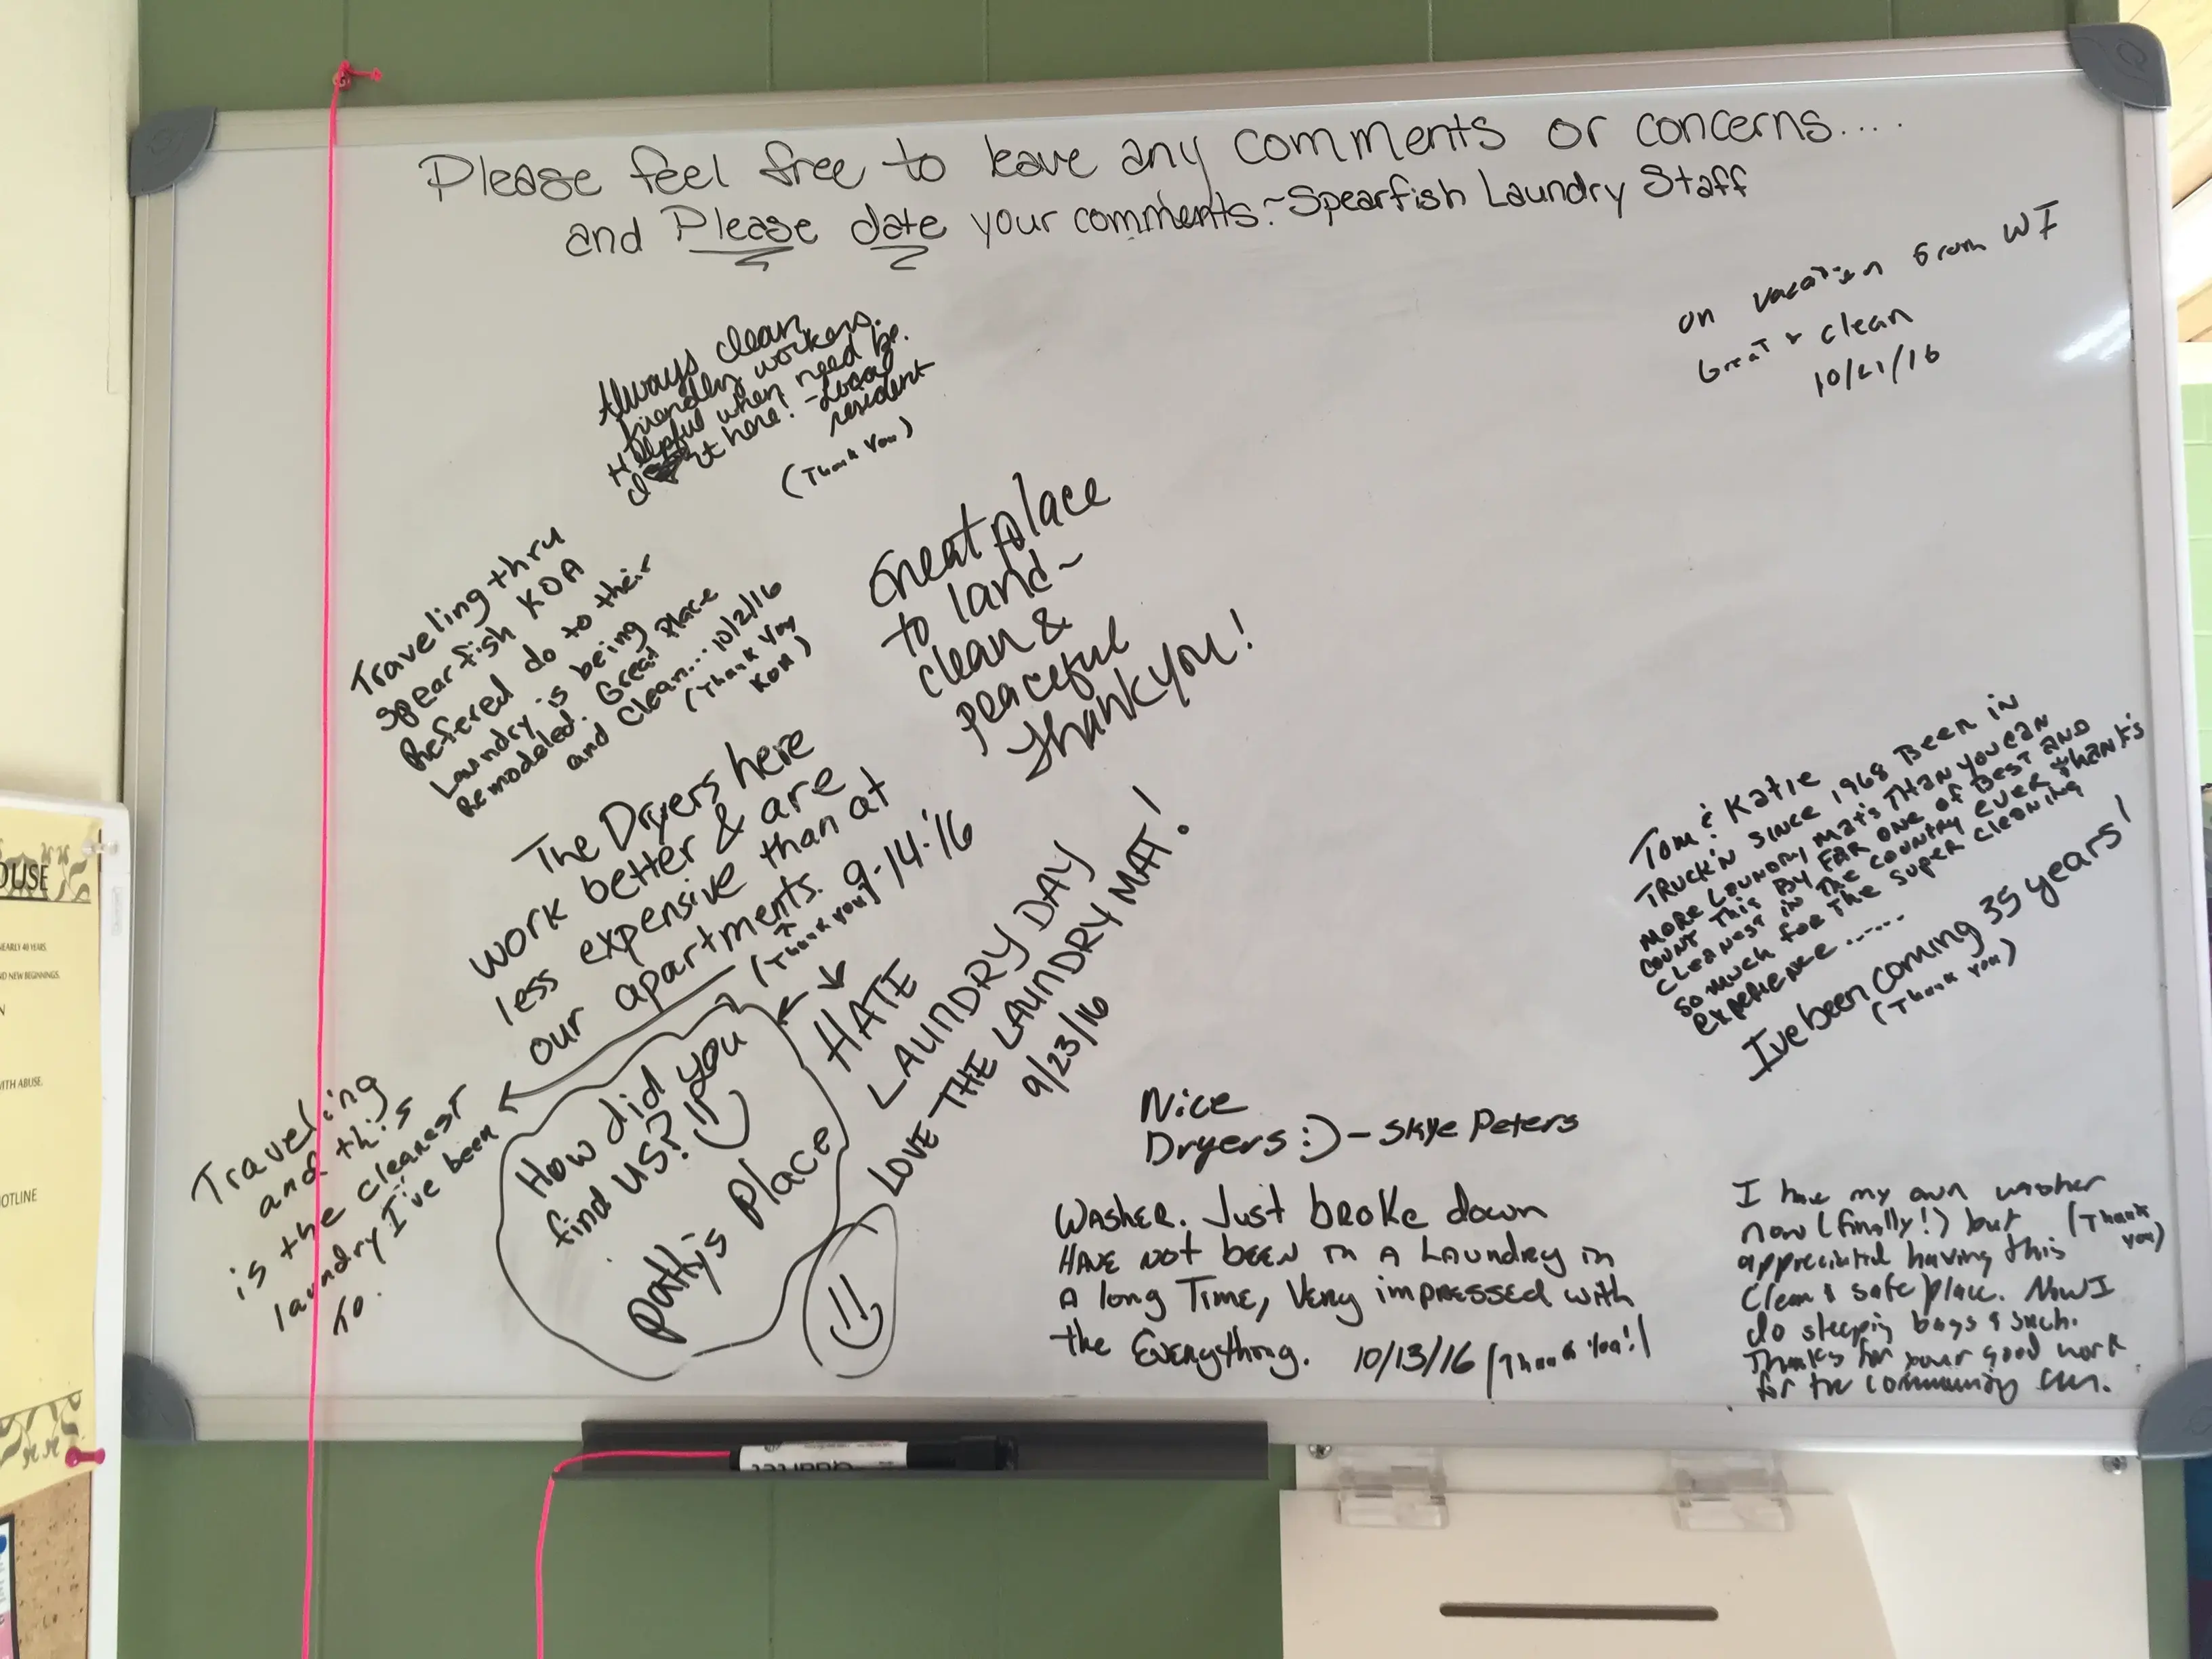 Please feel free to leave any comments or concerns....
and Please date your comments. ~Spearfish Laundry Staff
on vacation from WI
Great & clean
10/21/16
Always clean
friendly workers.
Helpful when need be.
it here! -Local
resident
(Thank You)
Traveling thru
Spearfish KOA
Refered do to their
Laundry is being
Remodeled. Great Place
and Clean... 10/2/16
(Thank You
KOA)
Great place
to land~
clean &
peaceful
Thank you!
The Dryers here
work better & are
less expensive than at
our apartments. 9-14-'16
(Thank you)
HATE
LAUNDRY DAY
LOVE THE LAUNDRY MAT!
9/23/16
Traveling
and this
is the cleanest
laundry I've been
to.
How did you
find us?
Patty's Place
Tom & Katie
TRUCK'N SINCE 1968 BEEN IN
MORE LAUNDRY MAT'S THAN YOU CAN
COUNT THIS BY FAR ONE OF BEST AND
CLEANEST IN THE COUNTRY EVER THANK'S
SO MUCH FOR THE SUPER CLEANING
EXPERIENCE......
I've been coming 35 years!
(Thank You)
Nice
Dryers :) - Skye Peters
WASHER. Just broke down
HAVE NOT BEEN IN A LAUNDRY in
A long TIME, Very impressed with
the Everything. 10/13/16 (Thank You!)
I have my own washer
now (finally!) but (Thank
appreciated having this you)
Clean & safe place. Now I
do sleeping bags & such.
Thanks for your good work
for the community
OUSE
NEARLY 40 YEARS
ND NEW BEGINNINGS.
WITH ABUSE.
HOTLINE
Quartet